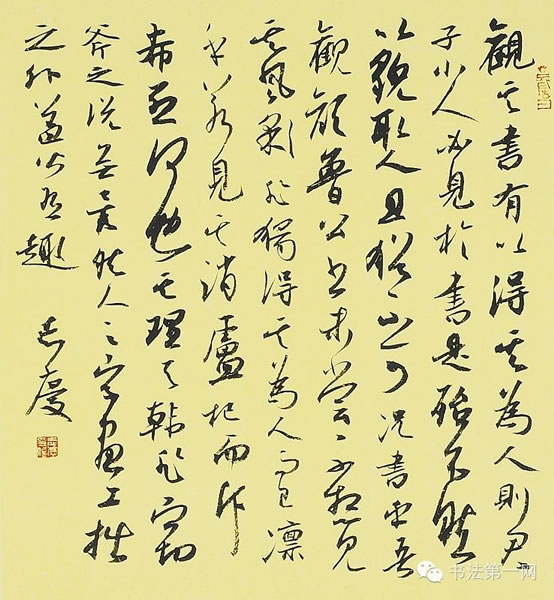 觀其書有以得其為人則君
子小人必見於書是殆不然
以貌取人且猶不可況書乎吾
觀顏魯公書未嘗不想見
其風彩非獨得其為人而已凛
乎若見其誚盧杞而叱
希烈何也其理與韓非竊
斧之說無異然人之字畫工拙
之外蓋皆有趣
慶
书法第一网